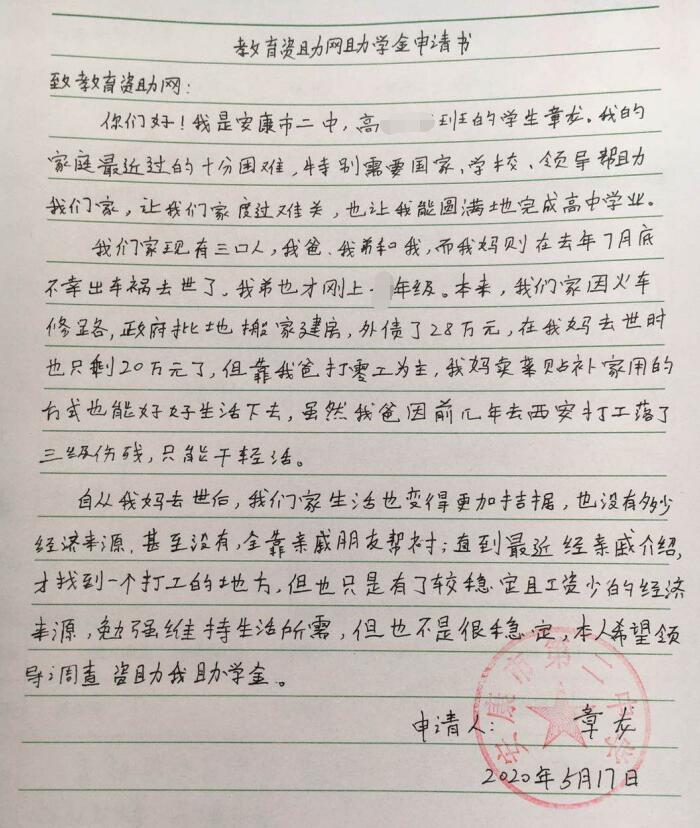 教育资助网助学金申请书
致教育资助网：
你们好！我是安康市二中，高 班的学生章龙。我的
家庭最近过的十分困难，特别需要国家、学校、领导帮助
我们家，让我们家度过难关，也让我能圆满地完成高中学业。
我们家现有三口人，我爸、我弟和我，而我妈则在去年7月底
不幸出车祸去世了。我弟也才刚上 年级。本来，我们家因火车
修路，政府批地搬家建房，外债了28万元，在我妈去世时
也只剩20万元了，但靠我爸打零工为主，我妈卖菜贴补家用的
方式也能好好生活下去，虽然我爸因前几年去西安打工落了
三级伤残，只能干轻活。
自从我妈去世后，我们家生活也变得更加拮据，也没有多少
经济来源，甚至没有，全靠亲戚朋友帮衬；直到最近经亲戚介绍，
才找到一个打工的地方，但也只是有了较稳定且工资少的经济
来源，勉强维持生活所需，但也不是很稳定，本人希望领
导调查 资助我助学金。
申请人：章龙
2020年5月17日
安康市第二中学